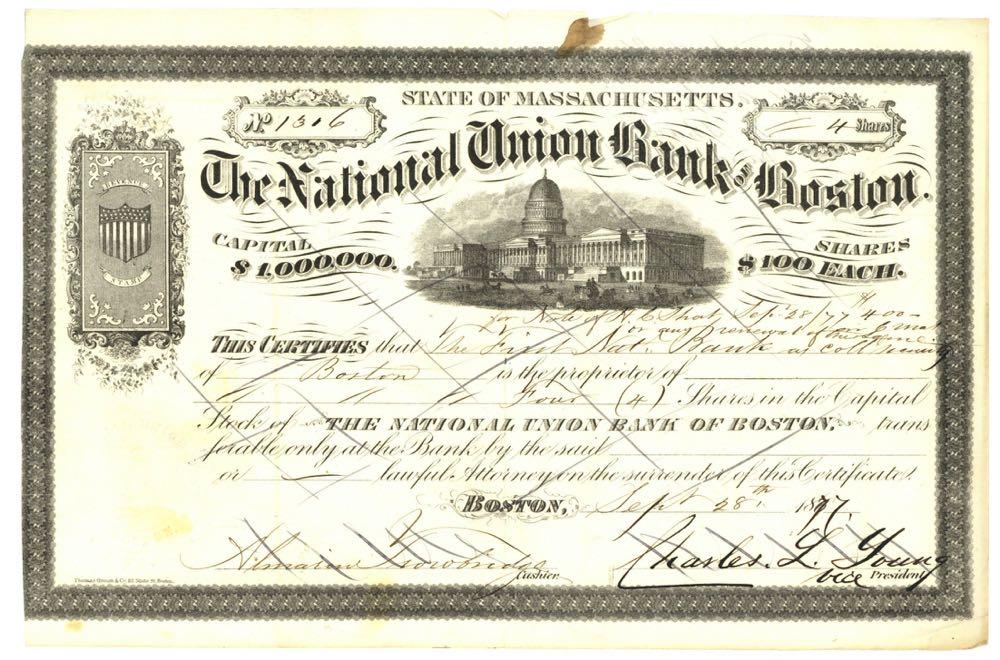 STATE OF MASSACHUSETTS.
No 1316
4 Shares
The National Union Bank of Boston.
REVENUE
STAMP
CAPITAL
$1,000,000.
SHARES
$100 EACH.
Sep. 28/77 400
or any renewal of
THIS CERTIFIES that The First Nat. Bank as Coll
of Boston is the proprietor of
Four (4) Shares in the Capital
Stock of THE NATIONAL UNION BANK OF BOSTON, trans
ferable only at the Bank by the said
or lawful Attorney on the surrender of this Certificate.
BOSTON, Sept 28th 1877.
Trowbridge
Cashier.
Charles L. Young
Vice President
Thomas Groom & Co. 82 State St. Boston.